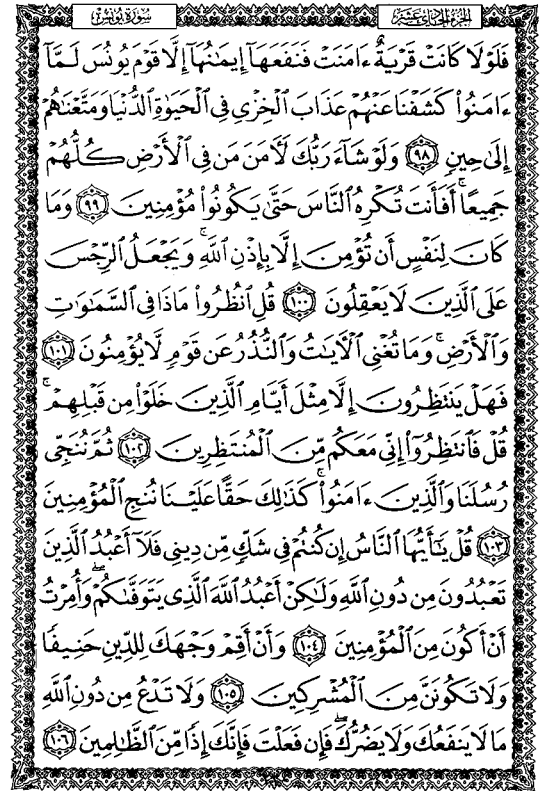 سورة يونس
الجزء الحادي عشر
فَلَوْلَا كَانَتْ قَرْيَةٌ ءَامَنَتْ فَنَفَعَهَآ إِيمَٰنُهَآ إِلَّا قَوْمَ يُونُسَ لَمَّآ
ءَامَنُوا۟ كَشَفْنَا عَنْهُمْ عَذَابَ ٱلْخِزْىِ فِى ٱلْحَيَوٰةِ ٱلدُّنْيَا وَمَتَّعْنَٰهُمْ
إِلَىٰ حِينٍ ٩٨ وَلَوْ شَآءَ رَبُّكَ لَـَٔامَنَ مَن فِى ٱلْأَرْضِ كُلُّهُمْ
جَمِيعًا ۚ أَفَأَنتَ تُكْرِهُ ٱلنَّاسَ حَتَّىٰ يَكُونُوا۟ مُؤْمِنِينَ ٩٩ وَمَا
كَانَ لِنَفْسٍ أَن تُؤْمِنَ إِلَّا بِإِذْنِ ٱللَّهِ ۚ وَيَجْعَلُ ٱلرِّجْسَ
عَلَى ٱلَّذِينَ لَا يَعْقِلُونَ ١٠٠ قُلِ ٱنظُرُوا۟ مَاذَا فِى ٱلسَّمَٰوَٰتِ
وَٱلْأَرْضِ ۚ وَمَا تُغْنِى ٱلْـَٔايَٰتُ وَٱلنُّذُرُ عَن قَوْمٍ لَّا يُؤْمِنُونَ ١٠١
فَهَلْ يَنتَظِرُونَ إِلَّا مِثْلَ أَيَّامِ ٱلَّذِينَ خَلَوْا۟ مِن قَبْلِهِمْ ۚ
قُلْ فَٱنتَظِرُوٓا۟ إِنِّى مَعَكُم مِّنَ ٱلْمُنتَظِرِينَ ١٠٢ ثُمَّ نُنَجِّى
رُسُلَنَا وَٱلَّذِينَ ءَامَنُوا۟ ۚ كَذَٰلِكَ حَقًّا عَلَيْنَا نُنجِ ٱلْمُؤْمِنِينَ
١٠٣ قُلْ يَٰٓأَيُّهَا ٱلنَّاسُ إِن كُنتُمْ فِى شَكٍّ مِّن دِينِى فَلَآ أَعْبُدُ ٱلَّذِينَ
تَعْبُدُونَ مِن دُونِ ٱللَّهِ وَلَٰكِنْ أَعْبُدُ ٱللَّهَ ٱلَّذِى يَتَوَفَّىٰكُمْ ۖ وَأُمِرْتُ
أَنْ أَكُونَ مِنَ ٱلْمُؤْمِنِينَ ١٠٤ وَأَنْ أَقِمْ وَجْهَكَ لِلدِّينِ حَنِيفًا
وَلَا تَكُونَنَّ مِنَ ٱلْمُشْرِكِينَ ١٠٥ وَلَا تَدْعُ مِن دُونِ ٱللَّهِ
مَا لَا يَنفَعُكَ وَلَا يَضُرُّكَ ۖ فَإِن فَعَلْتَ فَإِنَّكَ إِذًا مِّنَ ٱلظَّٰلِمِينَ ١٠٦